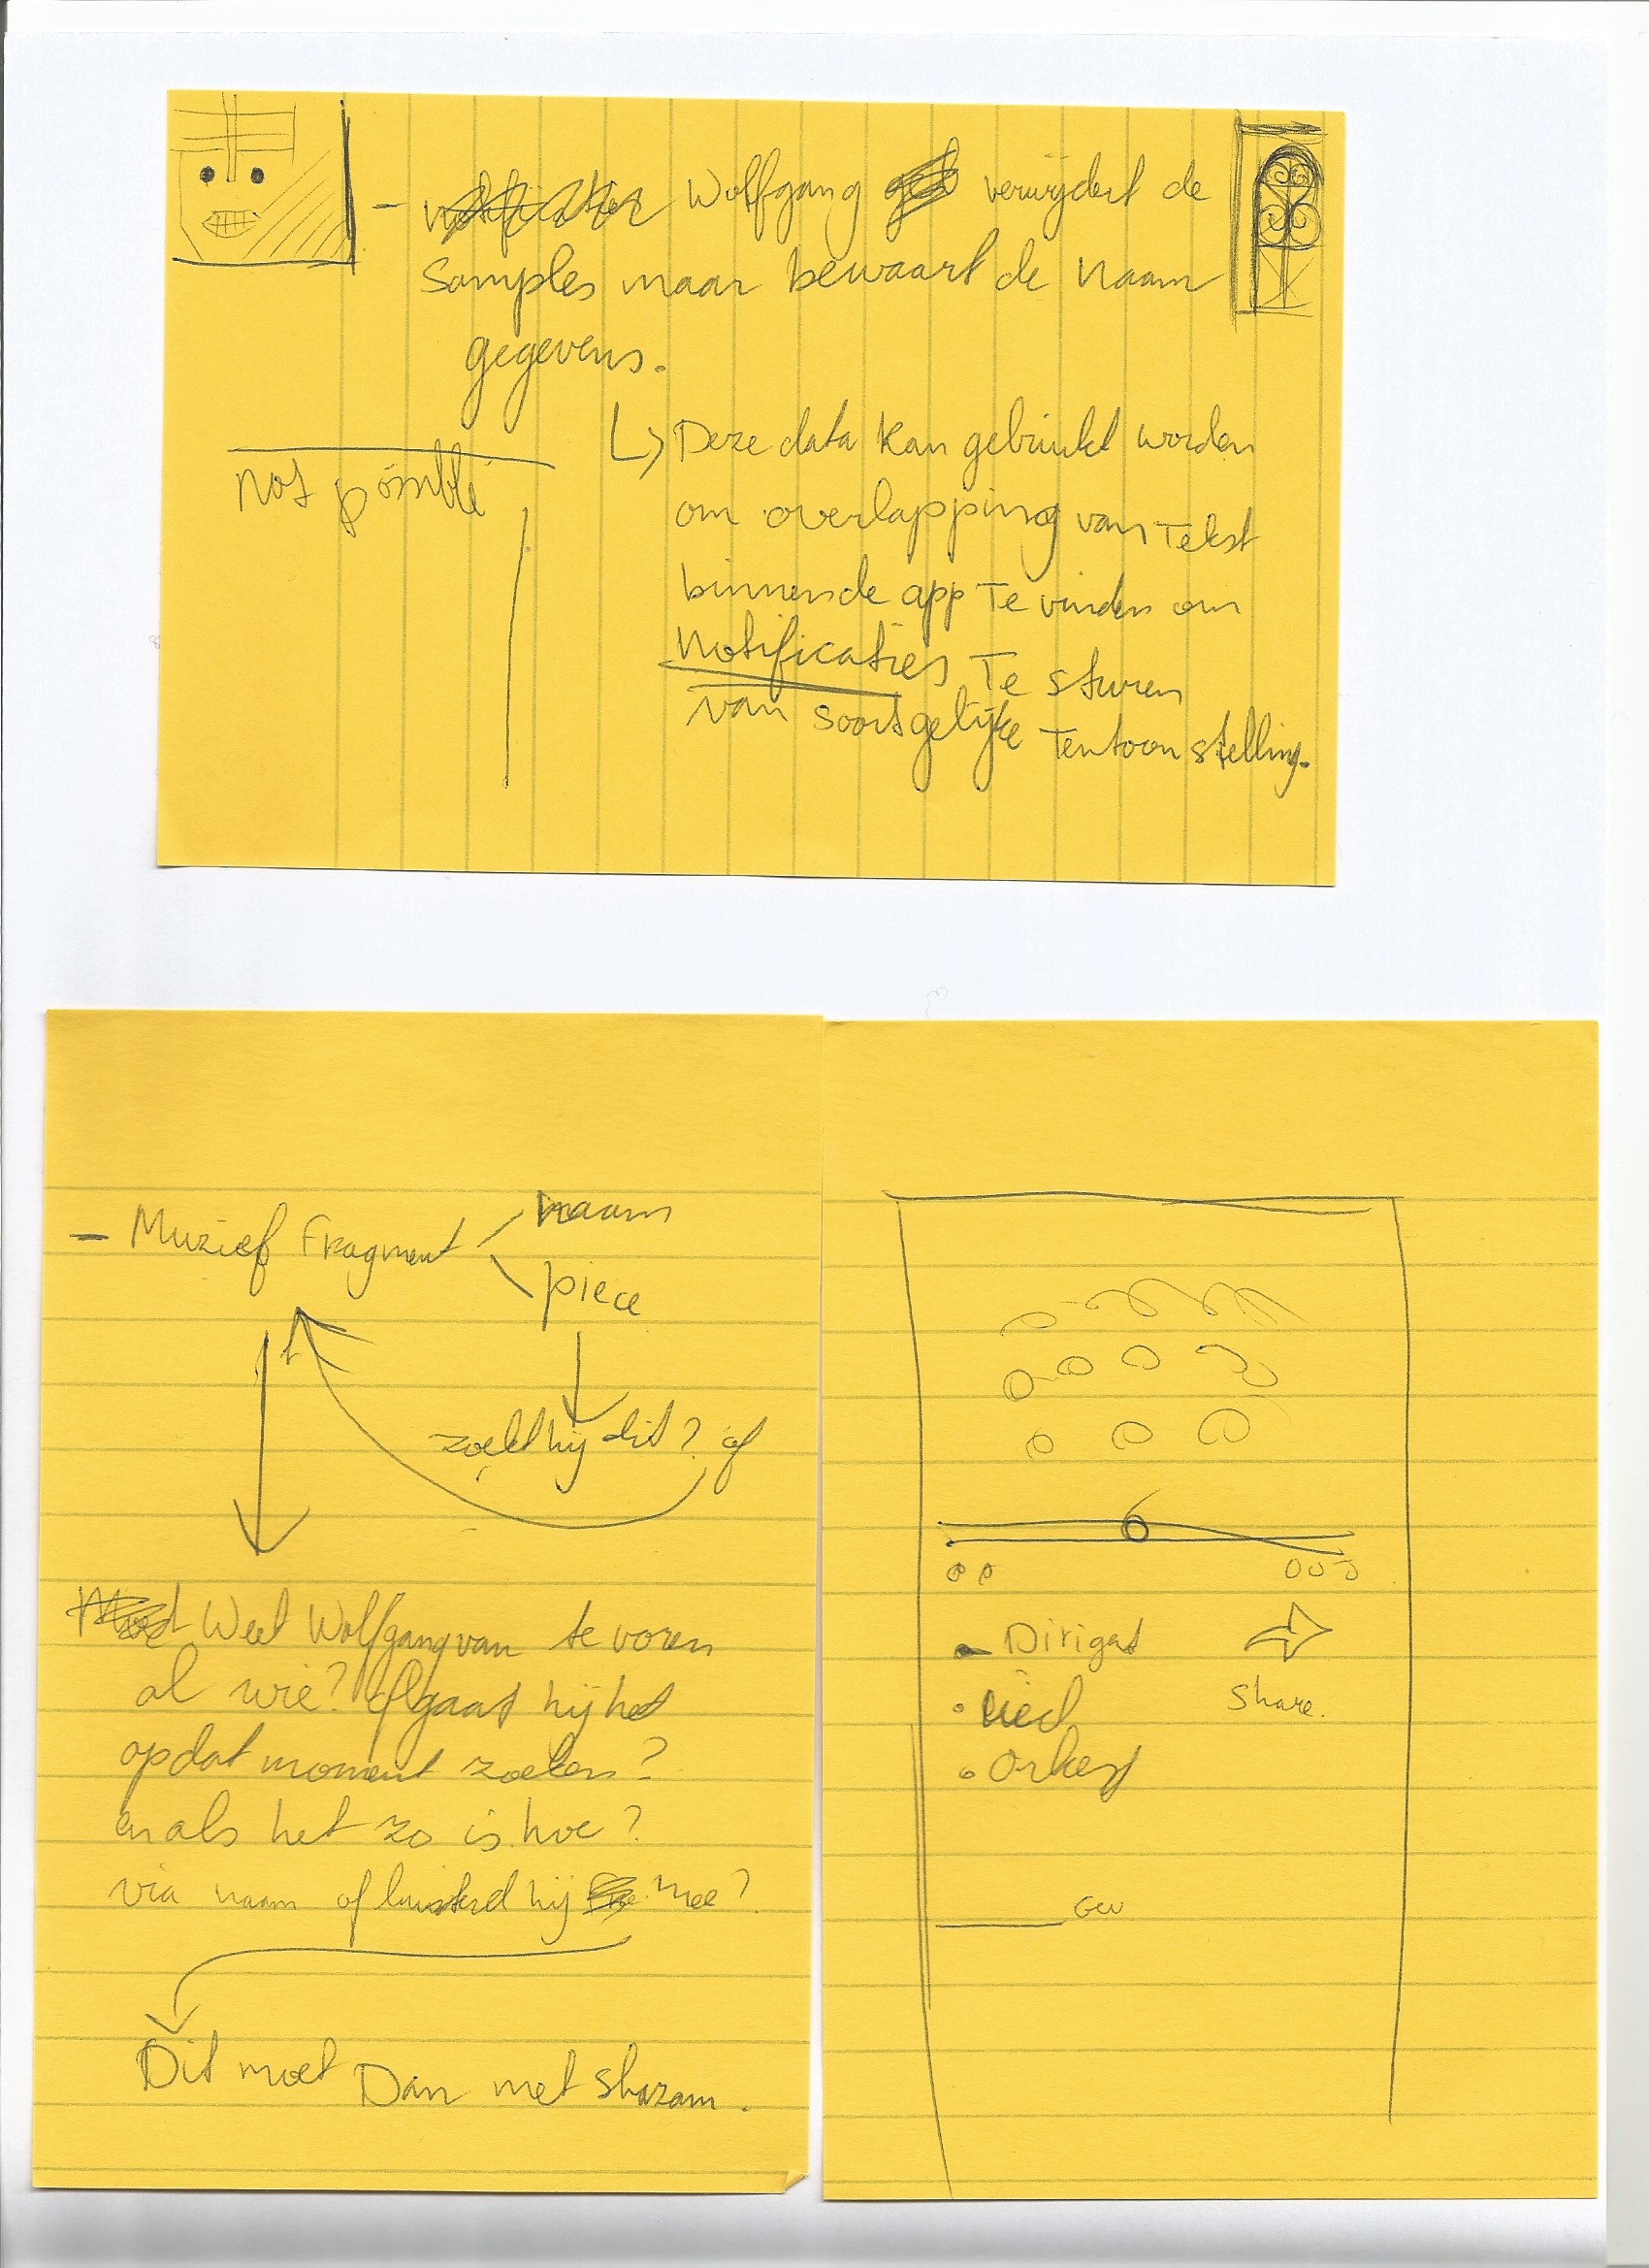 - Wolfgang verwijdert de
Samples maar bewaart de naam
gegevens.
Not possible
Deze data kan gebruikt worden
om overlapping van Tekst
binnen de app Te vinden om
Notificaties Te sturen
van soortgelijke Tentoonstelling.
- Muziek Fragment
naam
piece
zoekt hij dit? of
Weet Wolfgang van te voren
al wie? Of gaat hij het
op dat moment zoeken?
en als het zo is hoe?
via naam of luisterd hij mee?
Dit moet Dan met shazam.
- Dirigent
Share.
• Lied
• Orkest